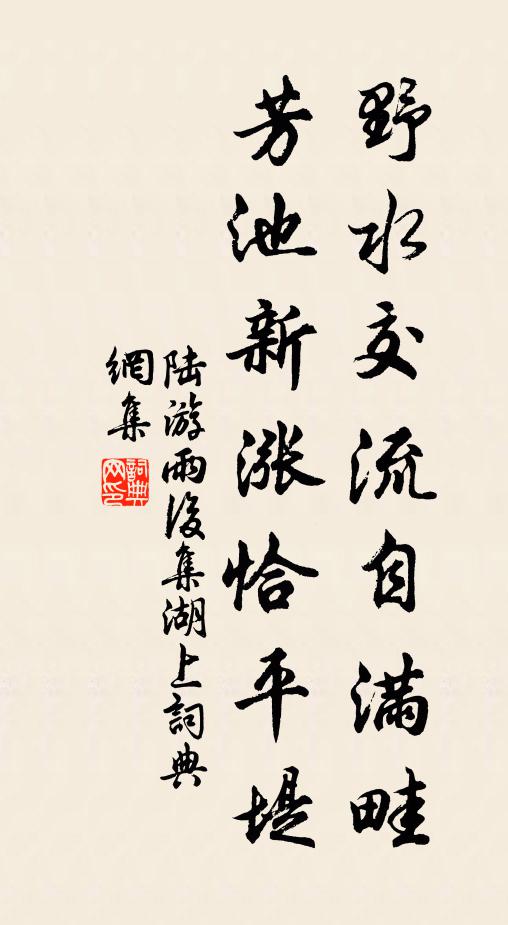 野水交流自满畦
芳池新涨恰平堤
陆游雨後集湖上詞典
網集
詞典网印